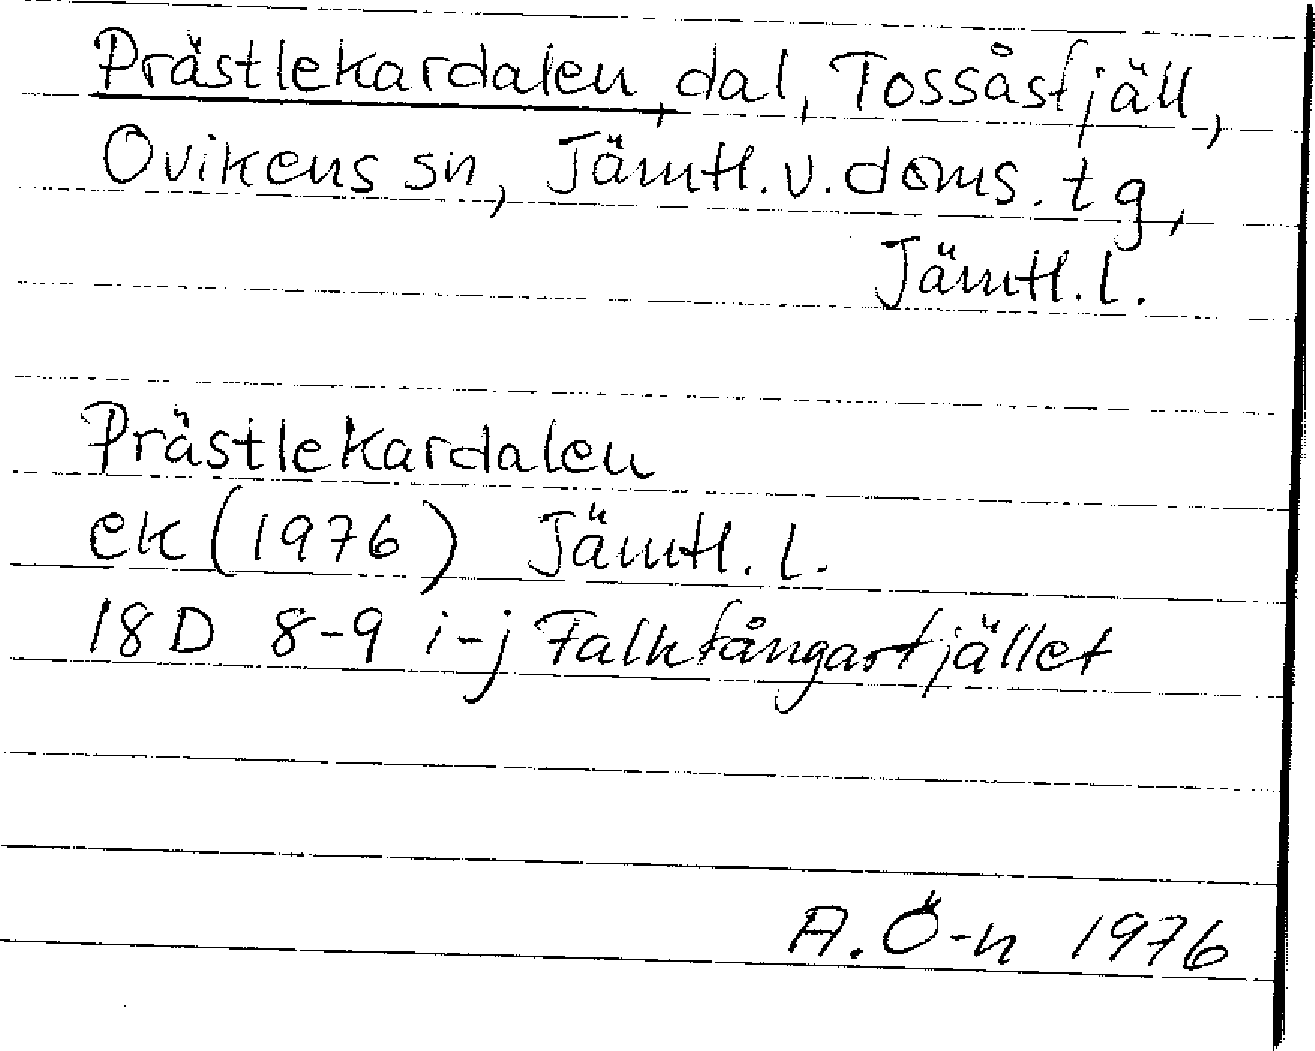 Prästlekardalen, dal, Tossåsfjäll,
Ovikens sn, Jämtl. v. doms. tg,
Jämtl. l.
Prästlekardalen
ek (1976) Jämtl. l.
18D 8-9 i-j Falkfångarfjället
A. Ö-n 1976